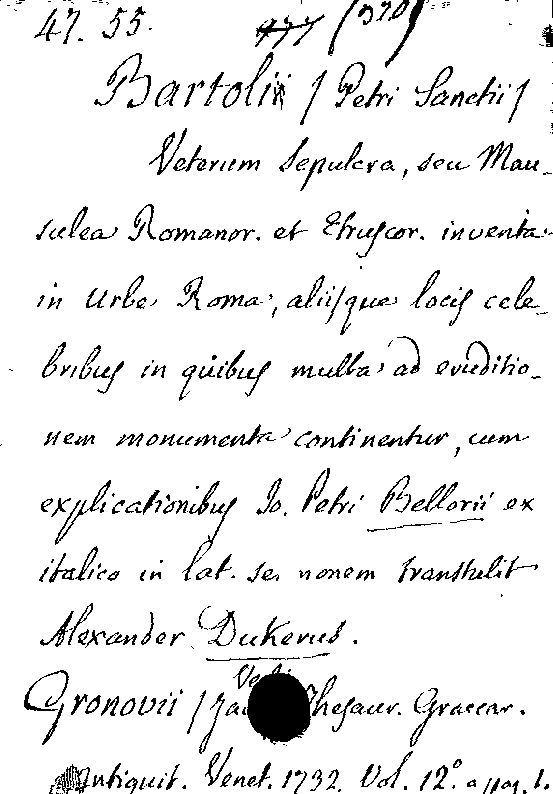 47. 55. 977 (370)
Bartolii / Petri Sanctii /
Veterum Sepulcra, seu Mau-
sulea Romanor. et Etruscor. inventa
in Urbe Roma, aliisque locis cele-
bribus in quibus multa ad eruditio-
nem monumenta continentur, cum
explicationibus Jo. Petri Bellorii ex
italico in lat. se. nonem transtulit
Alexander Dukerus.
Gronovii / Thesaur. Graecar.
Antiquit. Venet. 1732. Vol. 12° a pag. 1.